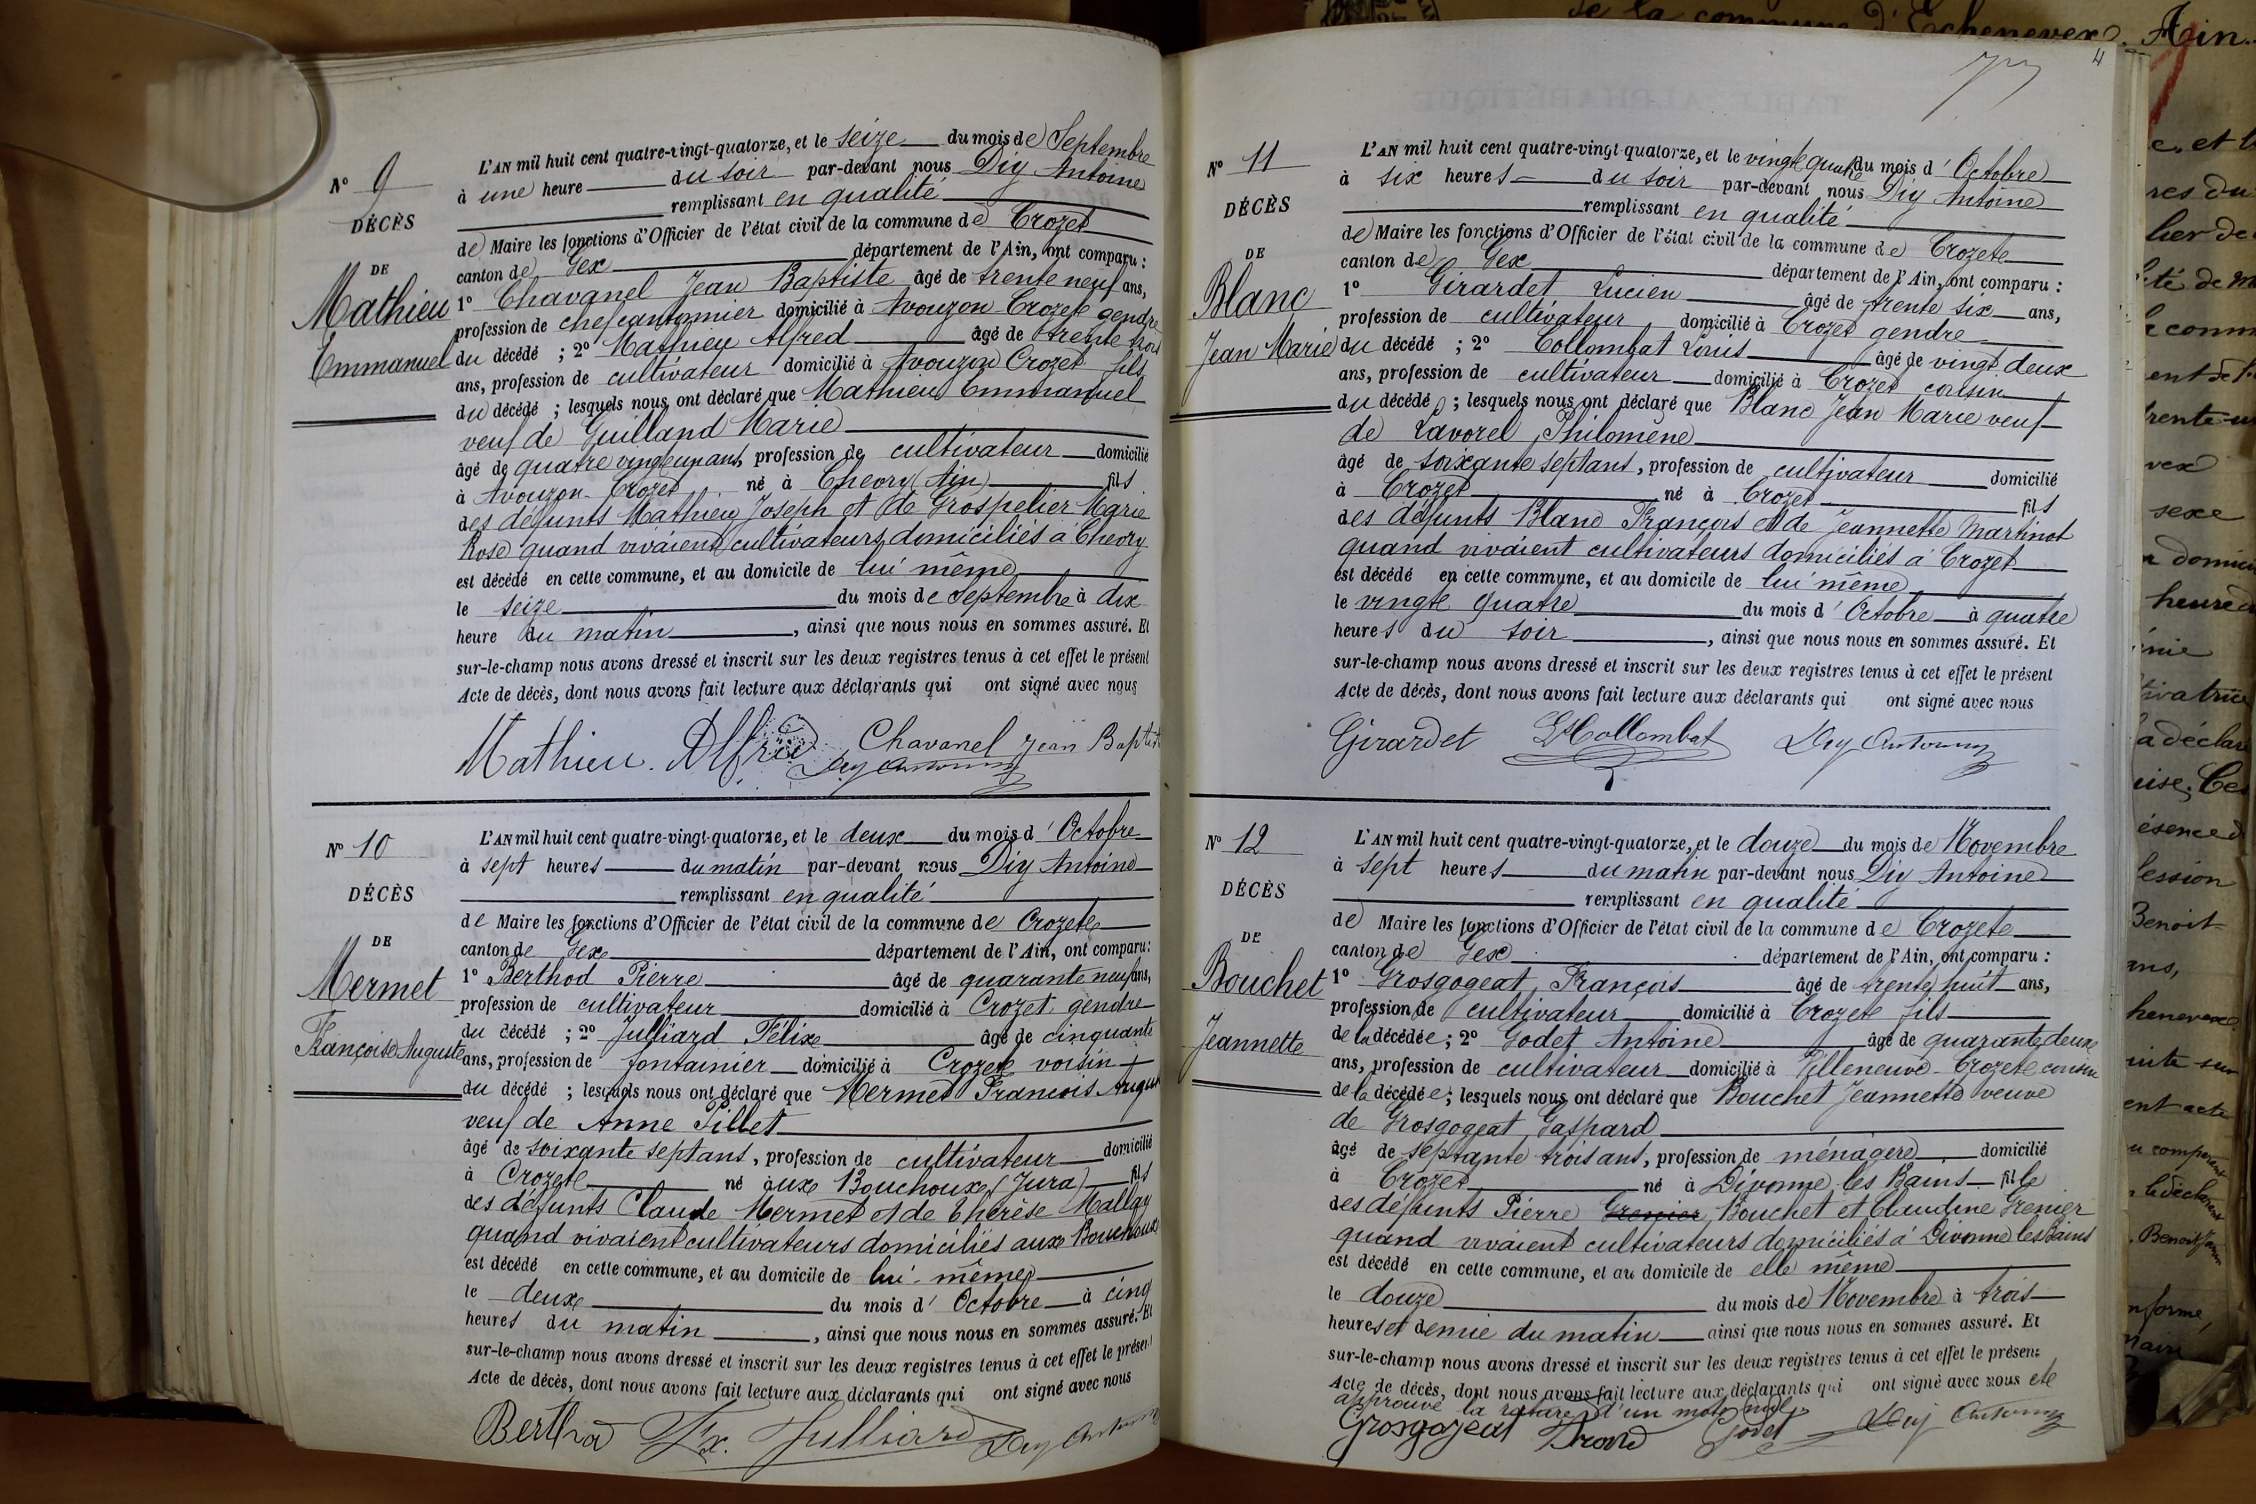 de la commune d'Echenevex. Ain.
4
N° 9
DÉCÈS
DE
Mathieu
Emmanuel
L'AN mil huit cent quatre-vingt-quatorze, et le seize du mois de Septembre
à une heure du soir par-devant nous Diy Antoine
remplissant en qualité
de Maire les fonctions d'Officier de l'état civil de la commune de Crozet
canton de Gex département de l'Ain, ont comparu :
1° Chavanel Jean Baptiste âgé de trente neuf ans,
profession de chef cantonnier domicilié à Avouzon Crozet gendre
du décédé ; 2° Mathieu Alfred âgé de trente trois
ans, profession de cultivateur domicilié à Avouzon Crozet fils
du décédé ; lesquels nous ont déclaré que Mathieu Emmanuel
veuf de Guilland Marie
âgé de quatre vingt un ans, profession de cultivateur domicilié
à Avouzon-Crozet né à Cheory (Ain) fils
des défunts Mathieu Joseph et de Grospelier Marie
Rose quand vivaient cultivateurs domiciliés à Cheory
est décédé en cette commune, et au domicile de lui même
le seize du mois de Septembre à dix
heure du matin, ainsi que nous nous en sommes assuré. Et
sur-le-champ nous avons dressé et inscrit sur les deux registres tenus à cet effet le présent
Acte de décès, dont nous avons fait lecture aux déclarants qui ont signé avec nous
Mathieu. Alfred Chavanel Jean Baptist
Diy Antoine
N° 10
DÉCÈS
DE
Mermet
François Auguste
L'AN mil huit cent quatre-vingt-quatorze, et le deux du mois d'Octobre
à sept heures du matin par-devant nous Diy Antoine
remplissant en qualité
de Maire les fonctions d'Officier de l'état civil de la commune de Crozet
canton de Gex département de l'Ain, ont comparu :
1° Berthod Pierre âgé de quarante neuf ans,
profession de cultivateur domicilié à Crozet gendre
du décédé ; 2° Julliard Félix âgé de cinquante
ans, profession de fontainier domicilié à Crozet voisin
du décédé ; lesquels nous ont déclaré que Mermet François Augus
veuf de Anne Pillet
âgé de soixante sept ans, profession de cultivateur domicilié
à Crozet né aux Bouchoux (Jura) fils
des défunts Claude Mermet et de Thérèse Mallay
quand vivaient cultivateurs domiciliés aux Bouchoux
est décédé en cette commune, et au domicile de lui-même
le deux du mois d'Octobre à cinq
heures du matin, ainsi que nous nous en sommes assuré. Et
sur-le-champ nous avons dressé et inscrit sur les deux registres tenus à cet effet le présent
Acte de décès, dont nous avons fait lecture aux déclarants qui ont signé avec nous
Berthod Fx. Julliard Diy Antoine
N° 11
DÉCÈS
DE
Blanc
Jean Marie
L'AN mil huit cent quatre-vingt-quatorze, et le vingt quatre du mois d'Octobre
à six heures du soir par-devant nous Diy Antoine
remplissant en qualité
de Maire les fonctions d'Officier de l'état civil de la commune de Crozet
canton de Gex département de l'Ain, ont comparu :
1° Girardet Lucien âgé de trente six ans,
profession de cultivateur domicilié à Crozet gendre
du décédé ; 2° Collombat Louis âgé de vingt deux
ans, profession de cultivateur domicilié à Crozet cousin
du décédé ; lesquels nous ont déclaré que Blanc Jean Marie veuf
de Lavorel Philomène
âgé de soixante sept ans, profession de cultivateur domicilié
à Crozet né à Crozet fils
des défunts Blanc François et de Jeannette Martinot
quand vivaient cultivateurs domiciliés à Crozet
est décédé en cette commune, et au domicile de lui même
le vingt quatre du mois d'Octobre à quatre
heures du soir, ainsi que nous nous en sommes assuré. Et
sur-le-champ nous avons dressé et inscrit sur les deux registres tenus à cet effet le présent
Acte de décès, dont nous avons fait lecture aux déclarants qui ont signé avec nous
Girardet Collombat Diy Antoine
N° 12
DÉCÈS
DE
Bouchet
Jeannette
L'AN mil huit cent quatre-vingt-quatorze, et le douze du mois de Novembre
à sept heures du matin par-devant nous Diy Antoine
remplissant en qualité
de Maire les fonctions d'Officier de l'état civil de la commune de Crozet
canton de Gex département de l'Ain, ont comparu :
1° Grosgogeat François âgé de trente huit ans,
profession de cultivateur domicilié à Crozet fils
de la décédée ; 2° Godet Antoine âgé de quarante deux
ans, profession de cultivateur domicilié à Villeneuve-Crozet cousin
de la décédée ; lesquels nous ont déclaré que Bouchet Jeannette veuve
de Grosgogeat Gaspard
âgé de septante trois ans, profession de ménagère domicilié
à Crozet né à Divonne les Bains fille
des défunts Pierre Grenier Bouchet et Claudine Grenier
quand vivaient cultivateurs domiciliés à Divonne les Bains
est décédé en cette commune, et au domicile de elle même
le douze du mois de Novembre à trois
heures et demie du matin ainsi que nous nous en sommes assuré. Et
sur-le-champ nous avons dressé et inscrit sur les deux registres tenus à cet effet le présent
Acte de décès, dont nous avons fait lecture aux déclarants qui ont signé avec nous et
approuvé la rature d'un mot nul.
Grosgogeat Godet Diy Antoine